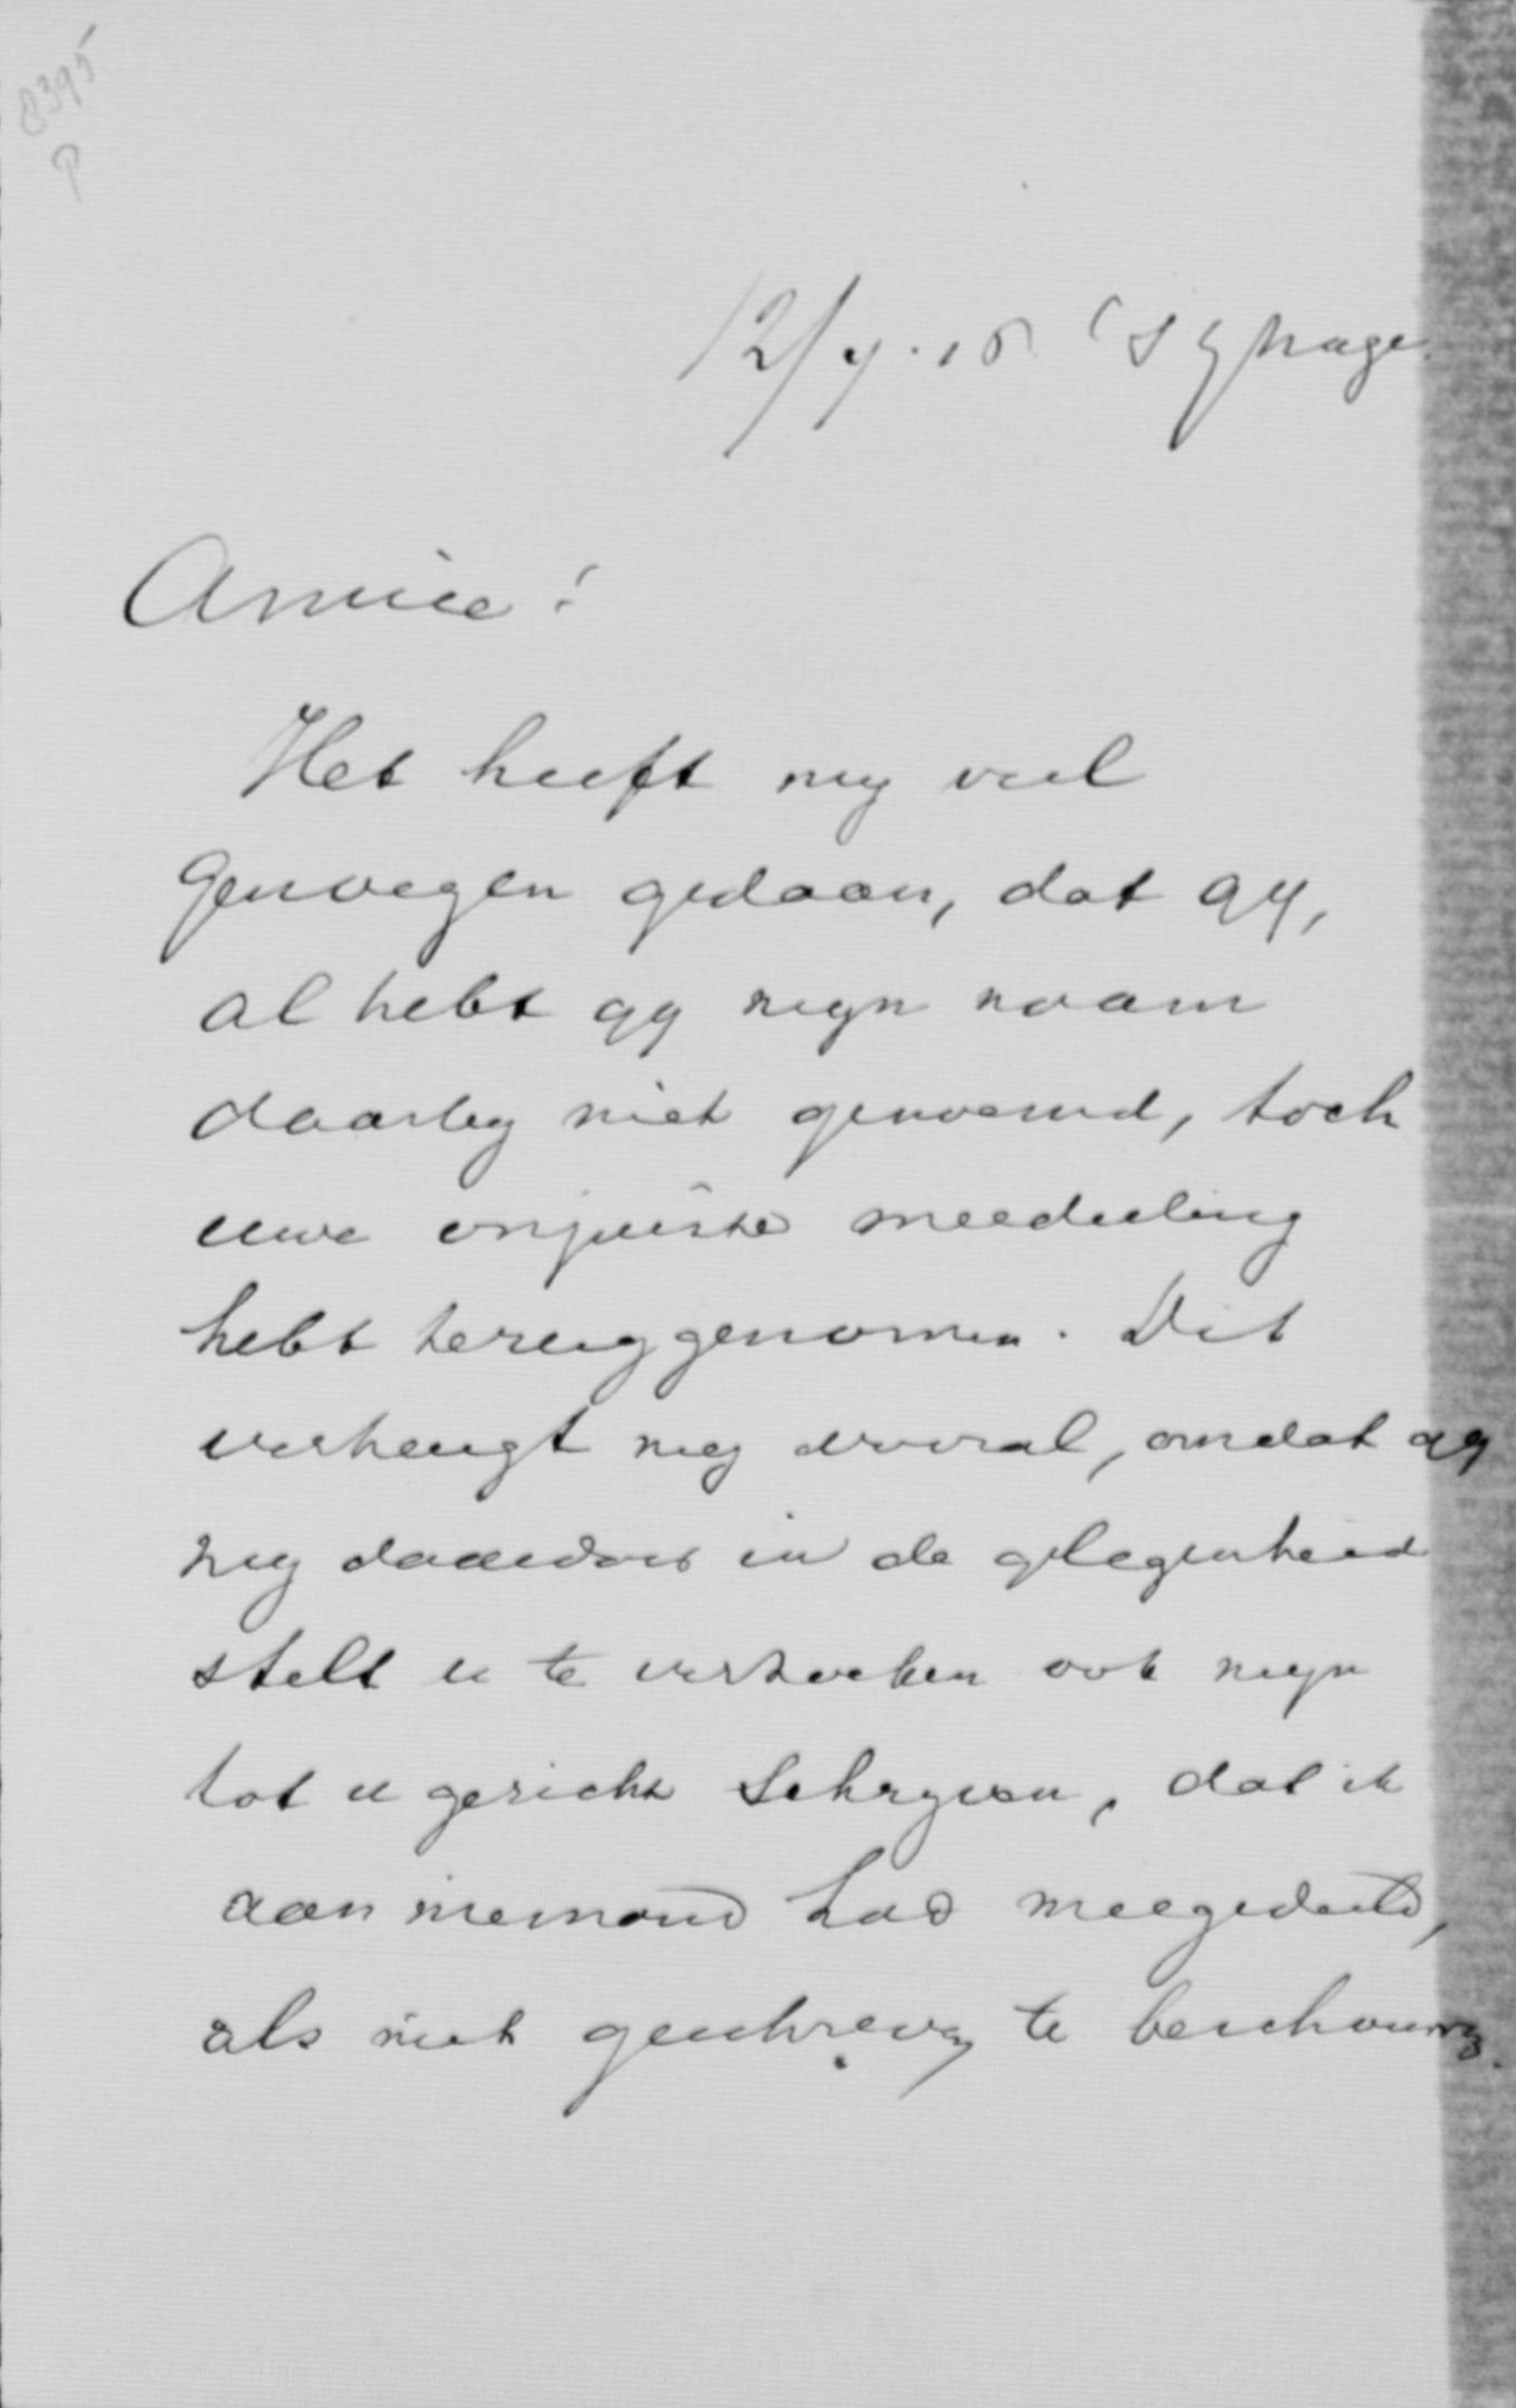 8395
P
12/4.15 's Ghage.
Amice!
Het heeft my veel
genoegen gedaan, dat gy,
al hebt gy myn naam
daarby niet genoemd, toch
uwe onjuiste meedeeling
hebt teruggenomen. Dit
verheugt my vooral, omdat gy
my daardoor in de gelegenheid
stelt u te verzoeken ook myn
tot u gericht schryven, dat ik
aan niemand had meegedeeld,
als niet geschreven te beschouwen.